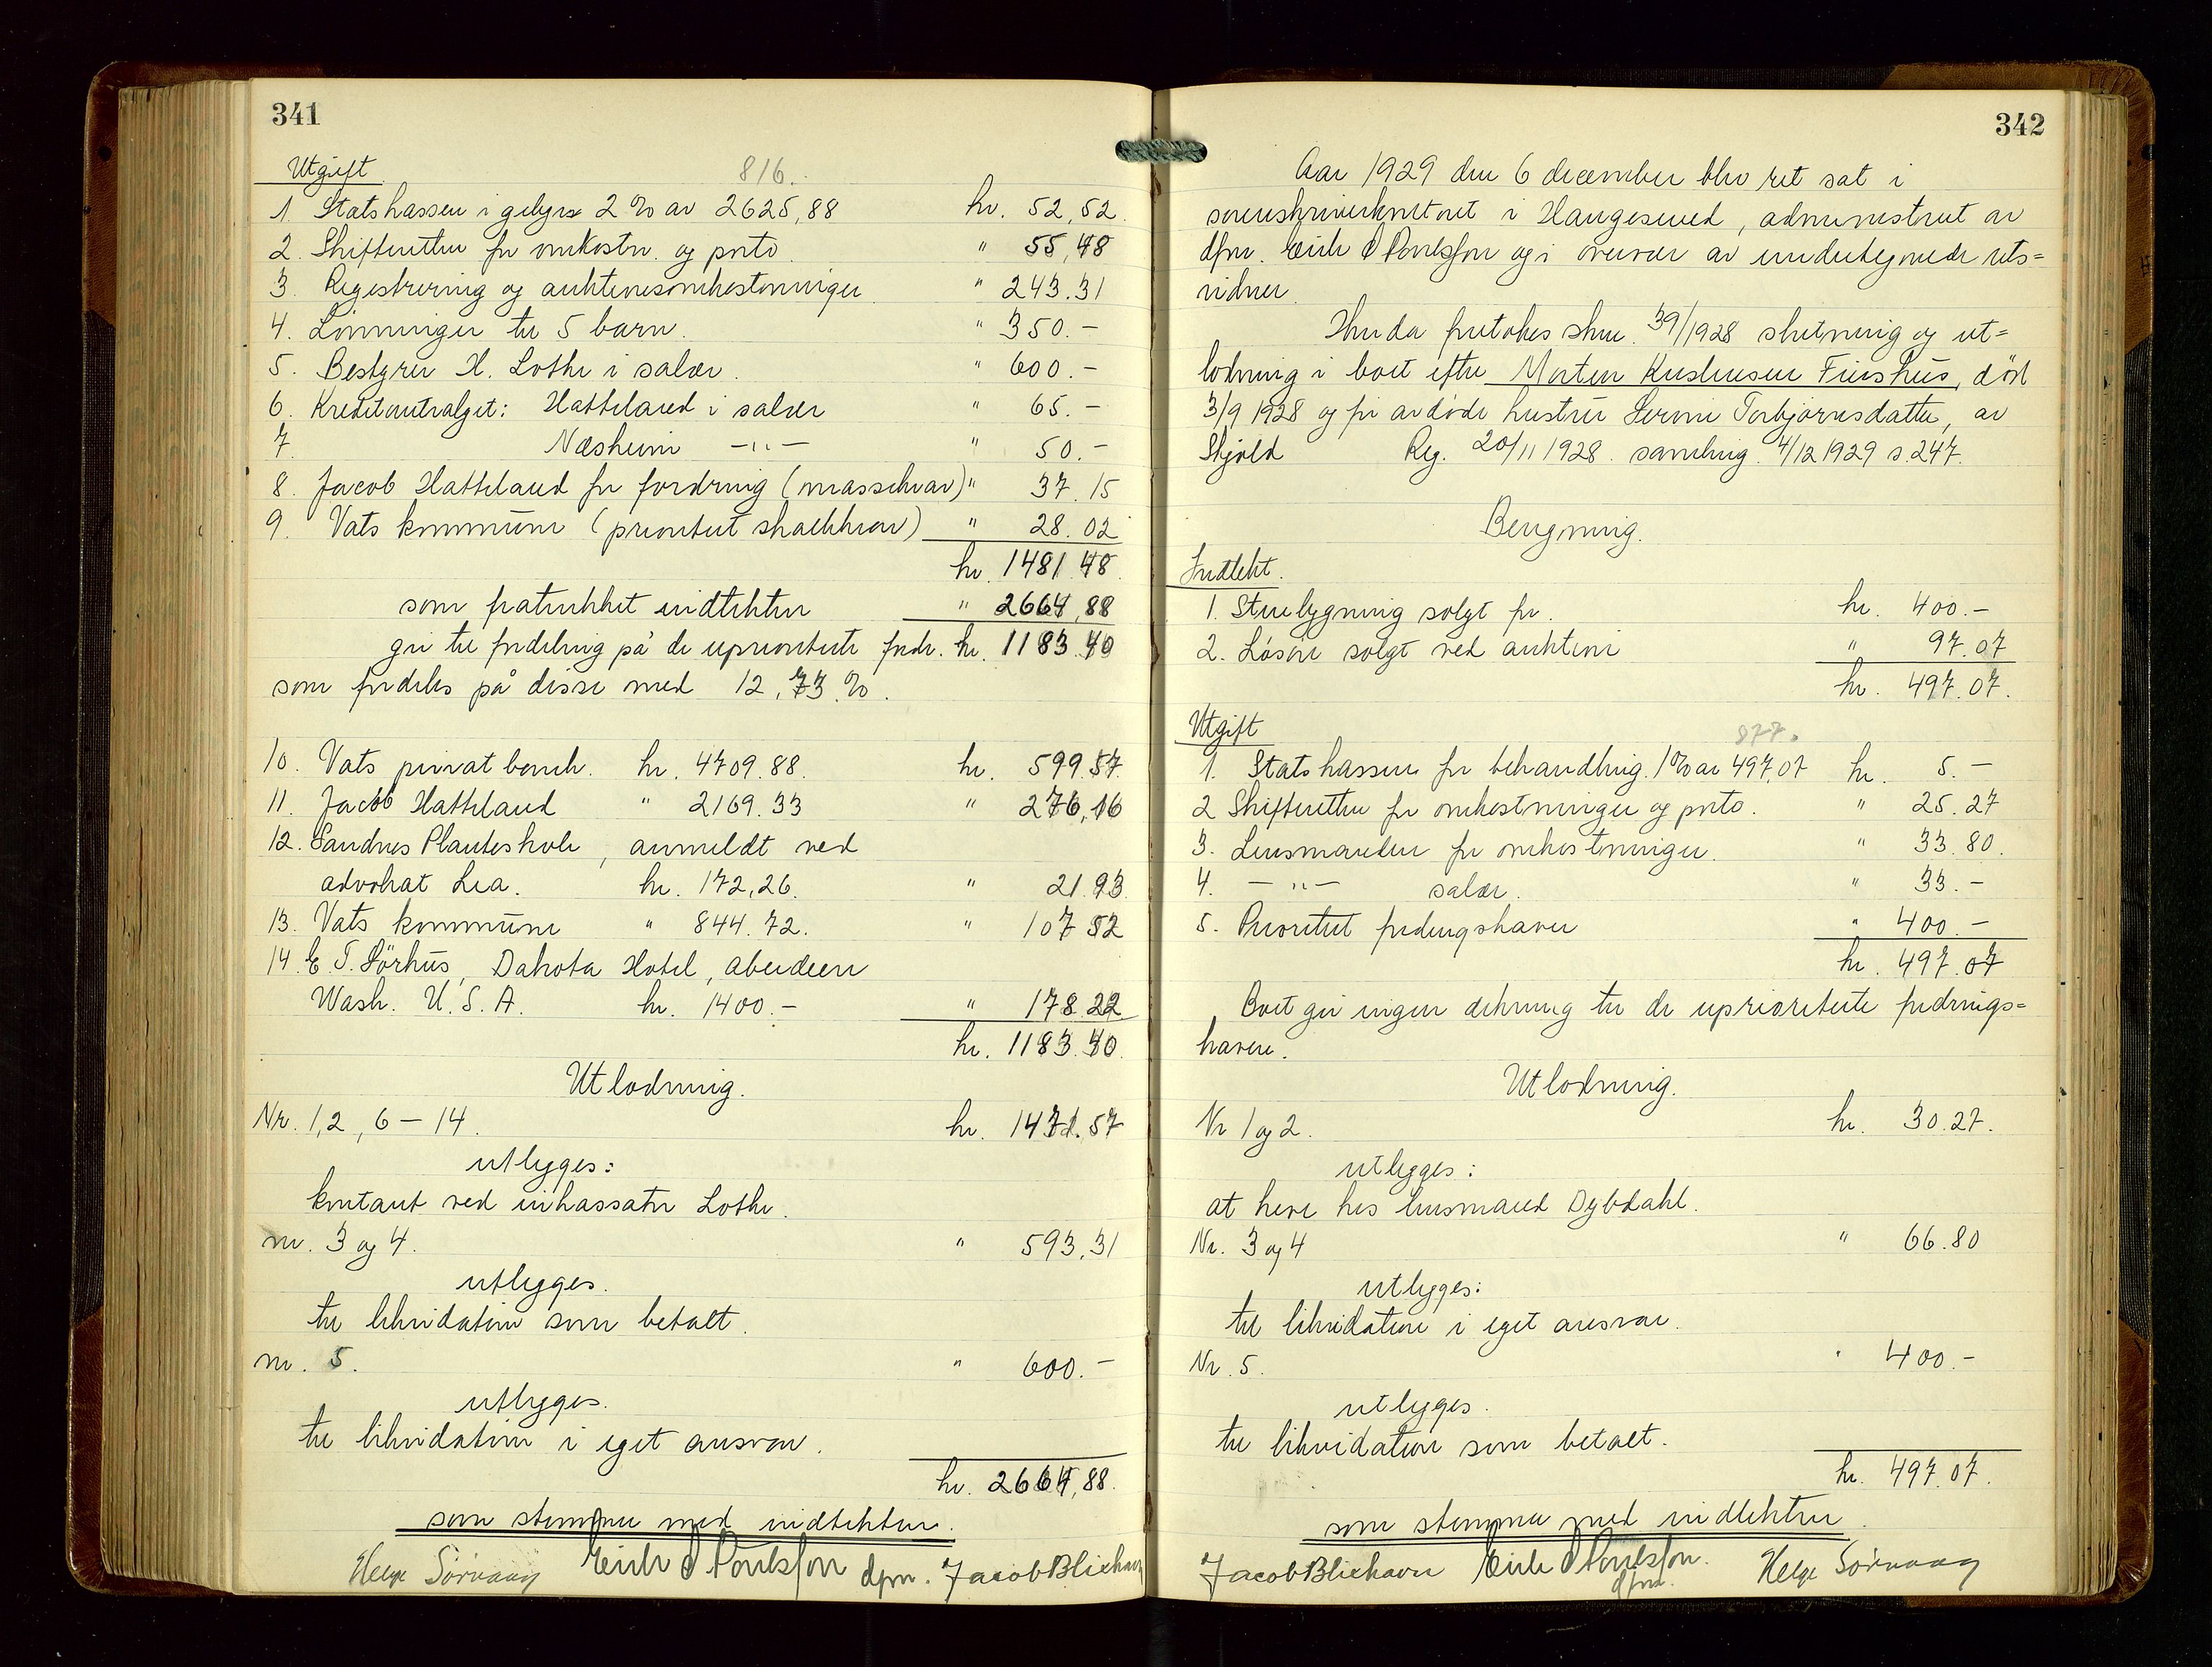 341
Utgift
816.
1. Statskassen i gebyr 2 % av 2625,88 kr. 52,52
2. Skifteretten for omkostn. og porto. " 55,48
3. Registrering og auktionsomkostninger " 243.31
4. Lønninger til 5 barn. " 350.-
5. Bestyrer H. Lothe i salær. " 600.-
6. Kreditorutvalget: Hatteland i salær " 65.-
7. Næsheim -"- " 50.-
8. Jacob Hatteland for fordring (massekrav) " 37.15
9. Vats kommune (prioritert skattkrav) " 28.02
kr. 1481.48
som fratrukket indtekten " 2664,88
gir til fordeling på de upriorterte fordr. kr. 1183.40
som fordeles på disse med 12,73 %.
10. Vats privatbank. kr. 4709.88. kr. 599.57
11. Jacob Hatteland " 2169.33 " 276,16
12. Sandnes Planteskole, anmeldt ved
advokat Lea. kr. 172,26. " 21.93
13. Vats kommune " 844.72. " 107 52
14. E. T. Sørhus, Dakota Hotel, Aberdeen
Wash. U. S. A. kr. 1400.- " 178.22
kr. 1183.40.
Utlodning.
Nr. 1, 2, 6 - 14. kr. 1471.57
utlegges:
kontant ved inkassator Lothe.
nr. 3 og 4. " 593,31
utlegges.
til likvidation som betalt.
nr. 5. " 600.-
utlegges.
til likvidation i eget ansvar.
kr. 2664,88.
som stemmer med indtekten.
Helge Sørvaag Eirik Poulsson dfm. Jacob Bliehavn
342
Aar 1929 den 6 december blev ret sat i
sorenskriverkontoret i Haugesund, administrert av
dfm. Eirik Poulsson og i overvær av undertegnede rets=
vidner.
Hvorda foretokes skr. 39/1928 slutning og ut=
lodning i boet efter Morten Kristensen Finshus, død
3/9 1928 og før avdøde hustru Serine Torbjørnsdatter, av
Skjold Reg. 20/11 1928. samling. 4/12 1929 s. 247.
Beregning.
Indtekt.
1. Stuebygning solgt for. kr. 400.-
2. Løsøre solgt ved auktion " 97.07
kr. 497.07.
Utgift
877.
1. Statskassen for behandling. 1 % av 497,07 kr. 5.-
2 Skifteretten for omkostninger og porto. " 25.27
3. Lensmanden for omkostninger. " 33.80.
4. -"- salær. " 33.-
5. Prioritert fordringshaver " 400.-
kr. 497.07
Boet gir ingen dekning til de uprioriterte fordrings=
havere.
Utlodning.
Nr 1 og 2. kr. 30.27.
utlegges:
at heve hos lensmand Dybdahl.
Nr. 3 og 4 " 66.80
utlegges:
til likvidation i eget ansvar.
Nr. 5. " 400.-
utlegges.
til likvidation som betalt.
kr. 497.07.
som stemmer med indtekten.
Jacob Bliehavn Eirik Poulsson. dfm. Helge Sørvaag